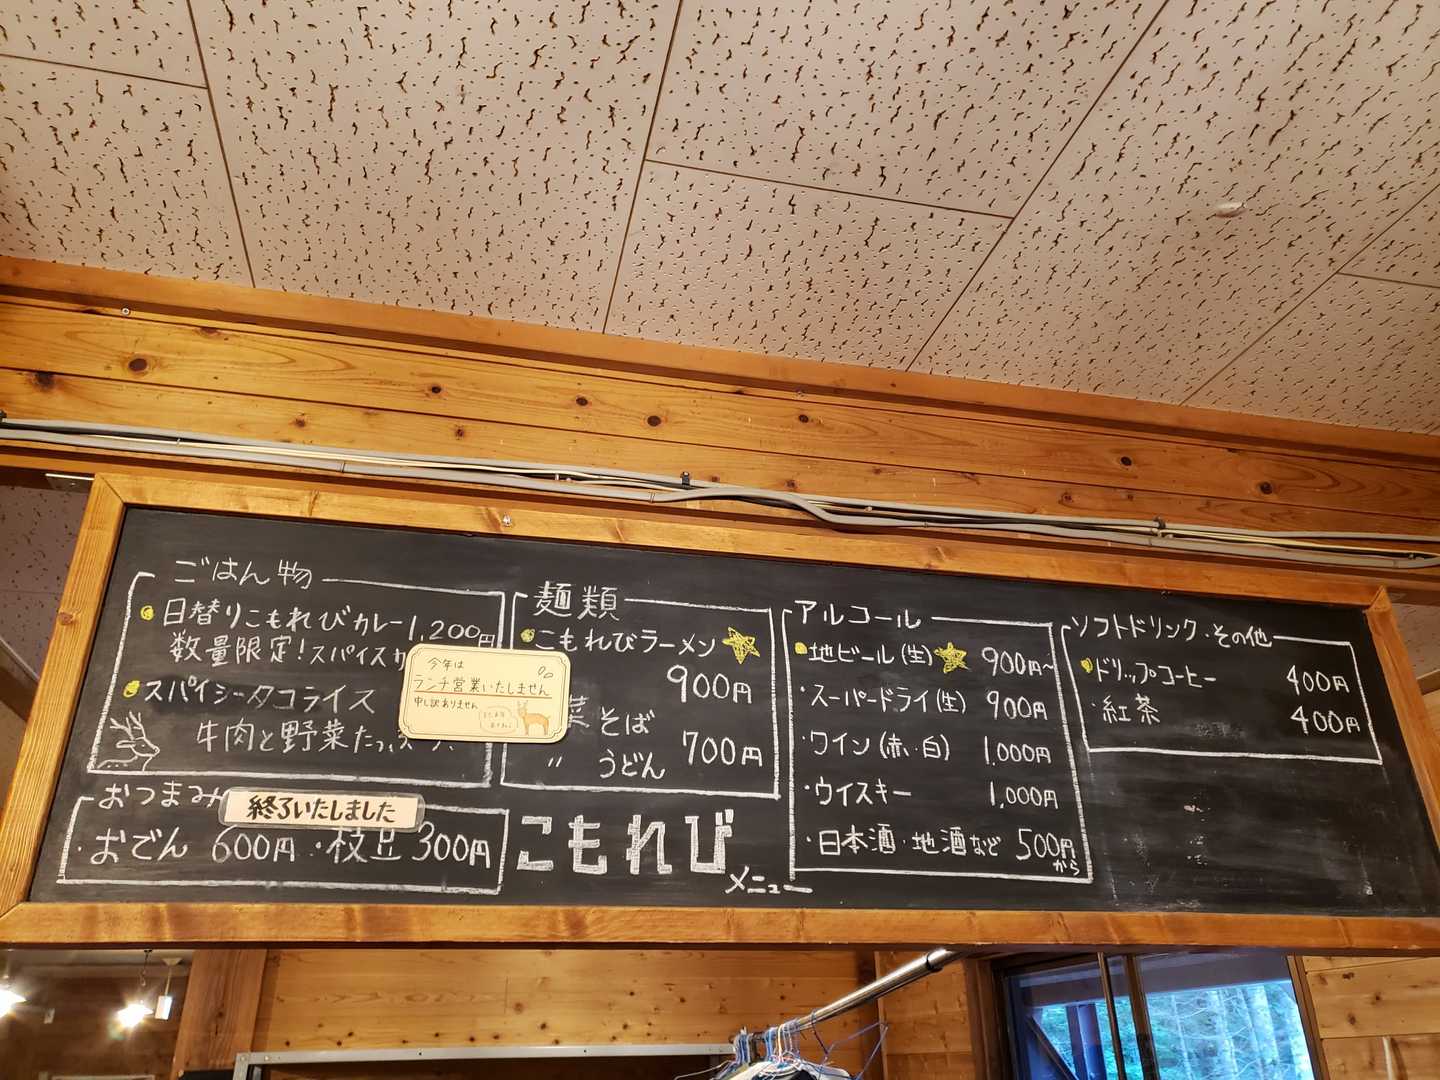 ごはん物
日替りこもれびカレー 1,200円
数量限定!スパイスカ
スパイシータコライス
牛肉と野菜たっ
今年は
ランチ営業いたしません
申し訳ありません
おつまみ
終了いたしました
・おでん 600円 ・枝豆 300円
麺類
こもれびラーメン
900円
菜そば
〃 うどん 700円
こもれび
メニュー
アルコール
地ビール(生) 900円~
・スーパードライ(生) 900円
・ワイン(赤・白) 1,000円
・ウイスキー 1,000円
・日本酒・地酒など 500円から
ソフトドリンク・その他
ドリップコーヒー 400円
・紅茶 400円